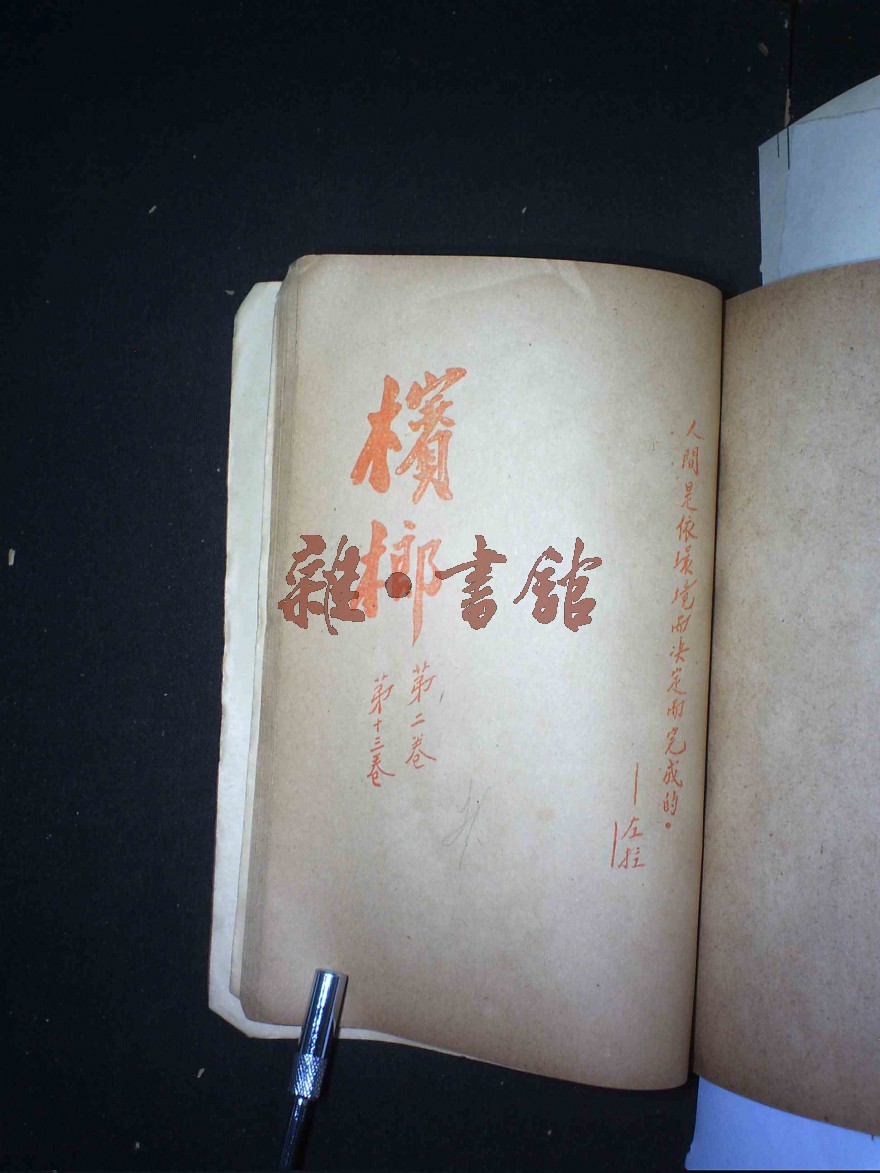 人間是依環境而決定而完成的。
——左拉
檳榔
第二卷
第十三卷
雜·書館